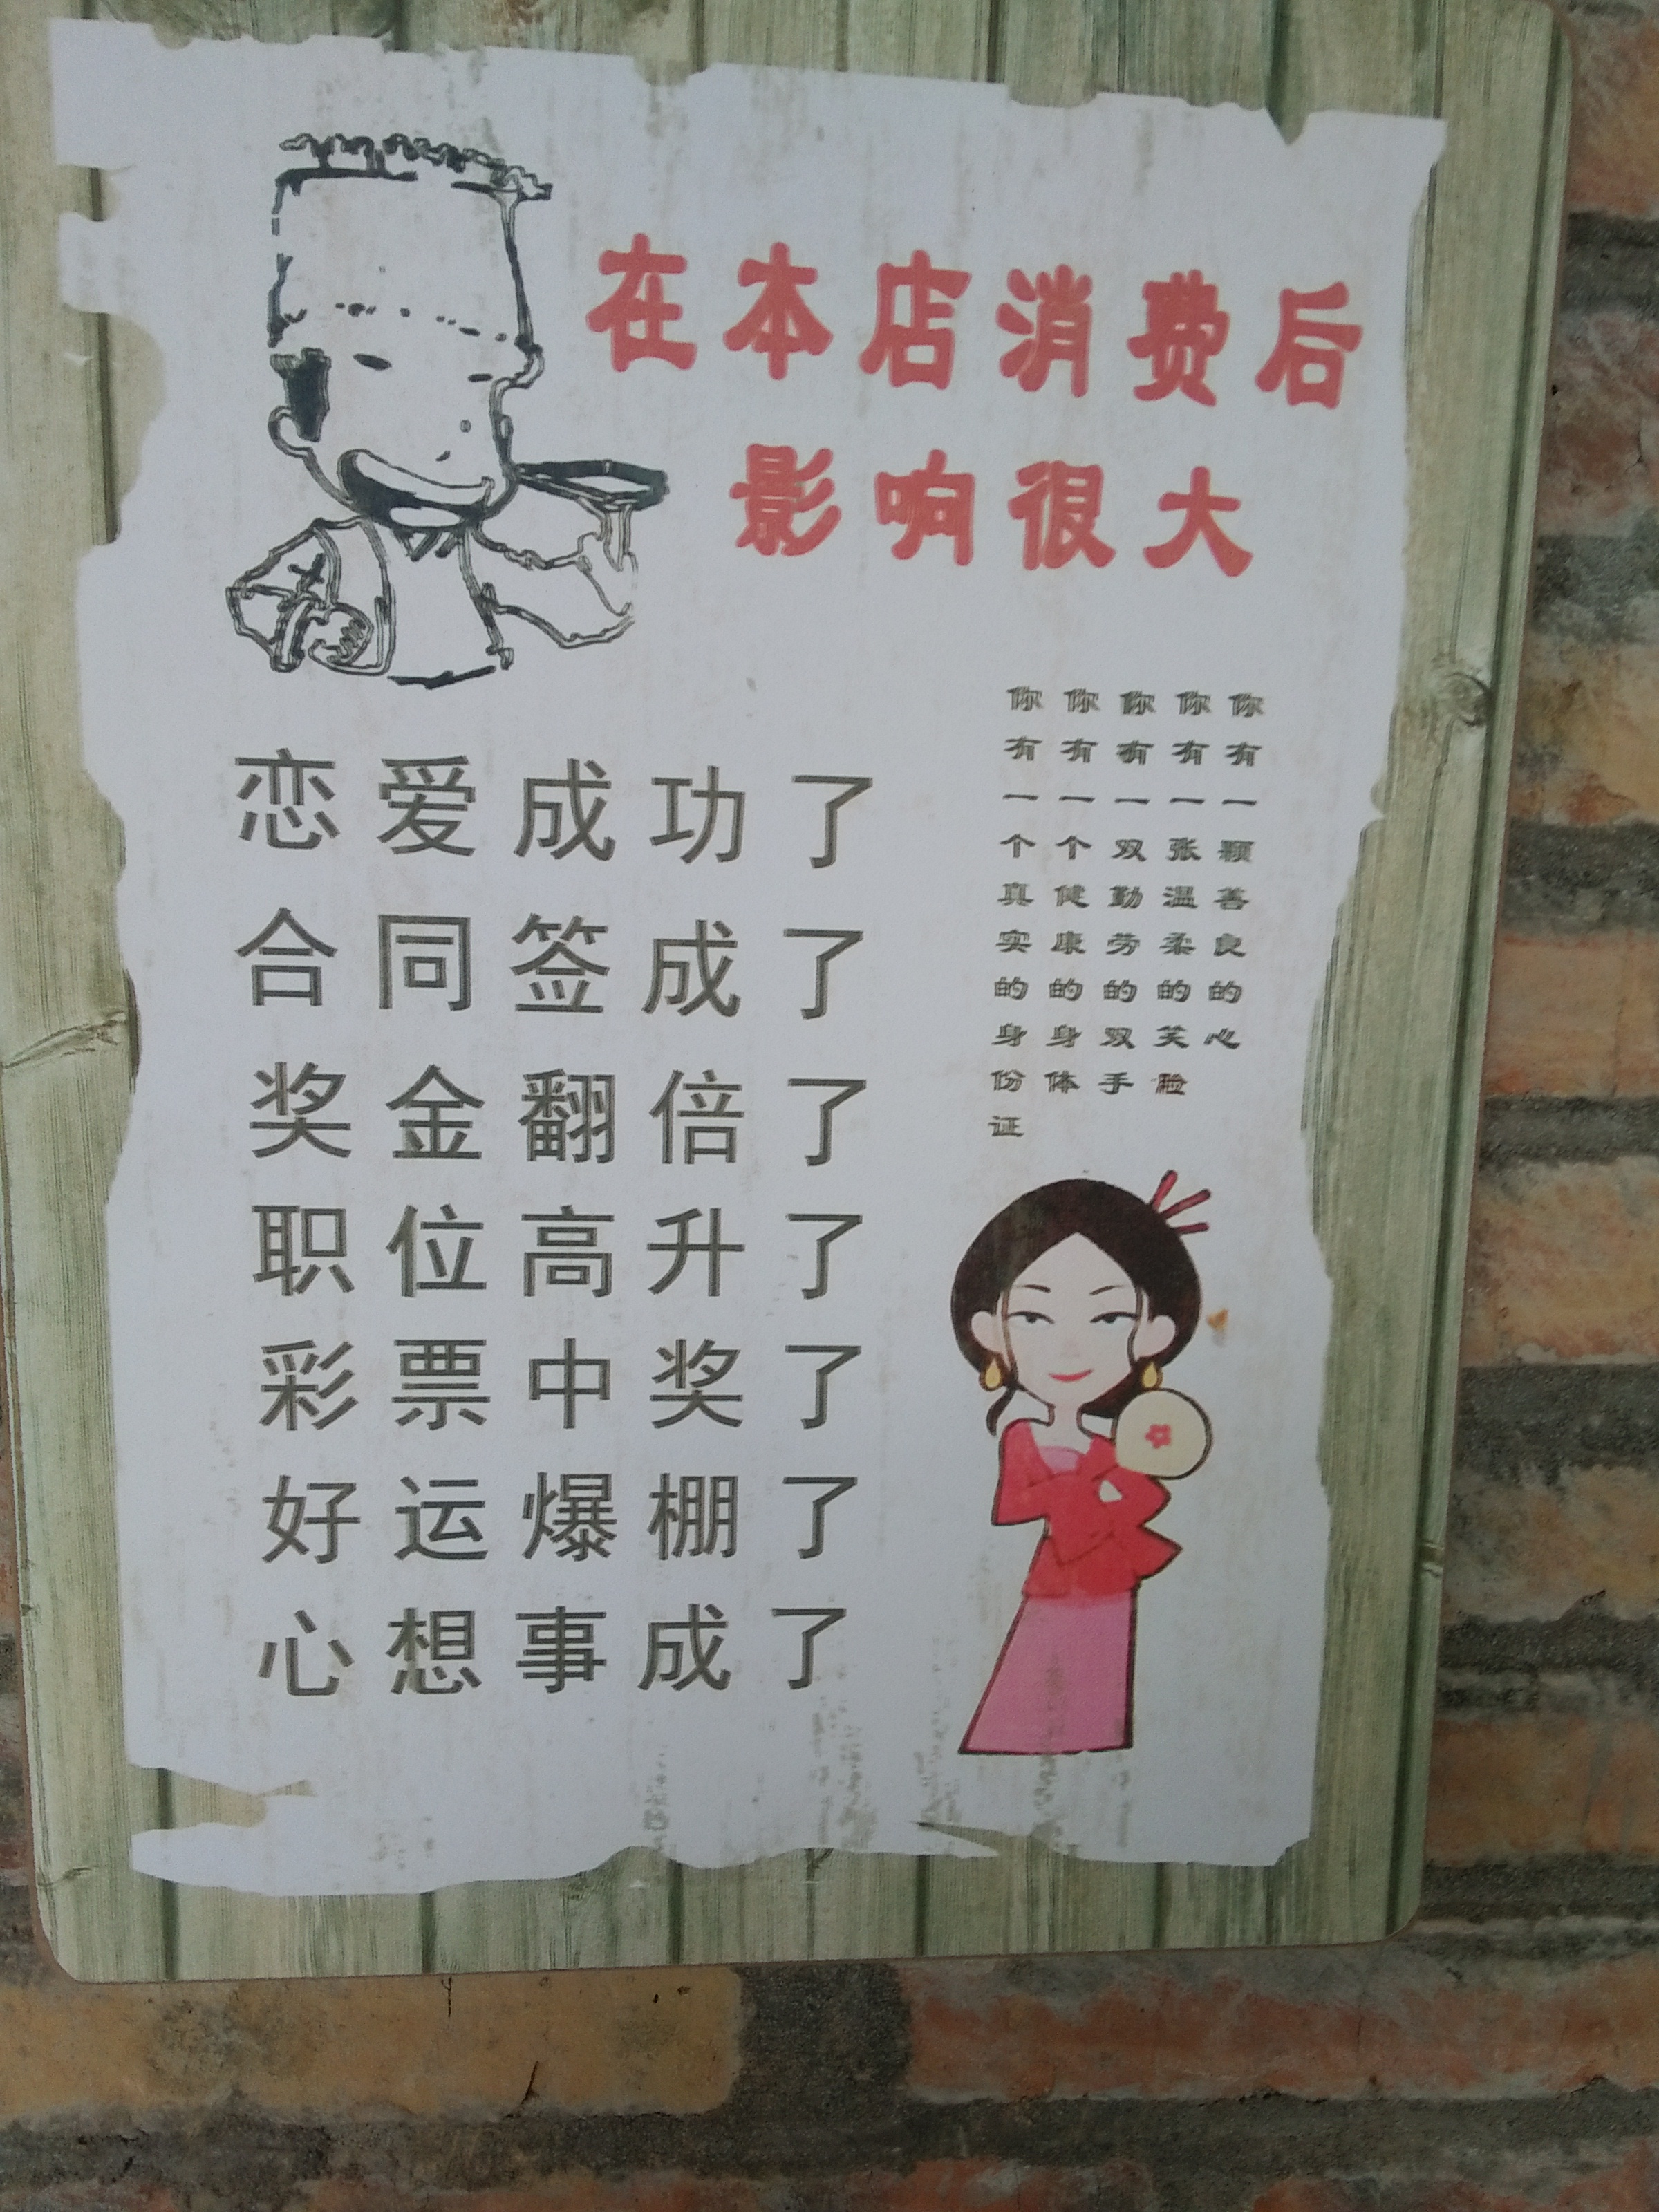 在本店消费后
影响很大
恋爱成功了
合同签成了
奖金翻倍了
职位高升了
彩票中奖了
好运爆棚了
心想事成了
你有一颗善良的心
你有一张温柔的笑脸
你有一双勤劳的双手
你有一个健康的身体
你有一个真实的身份证